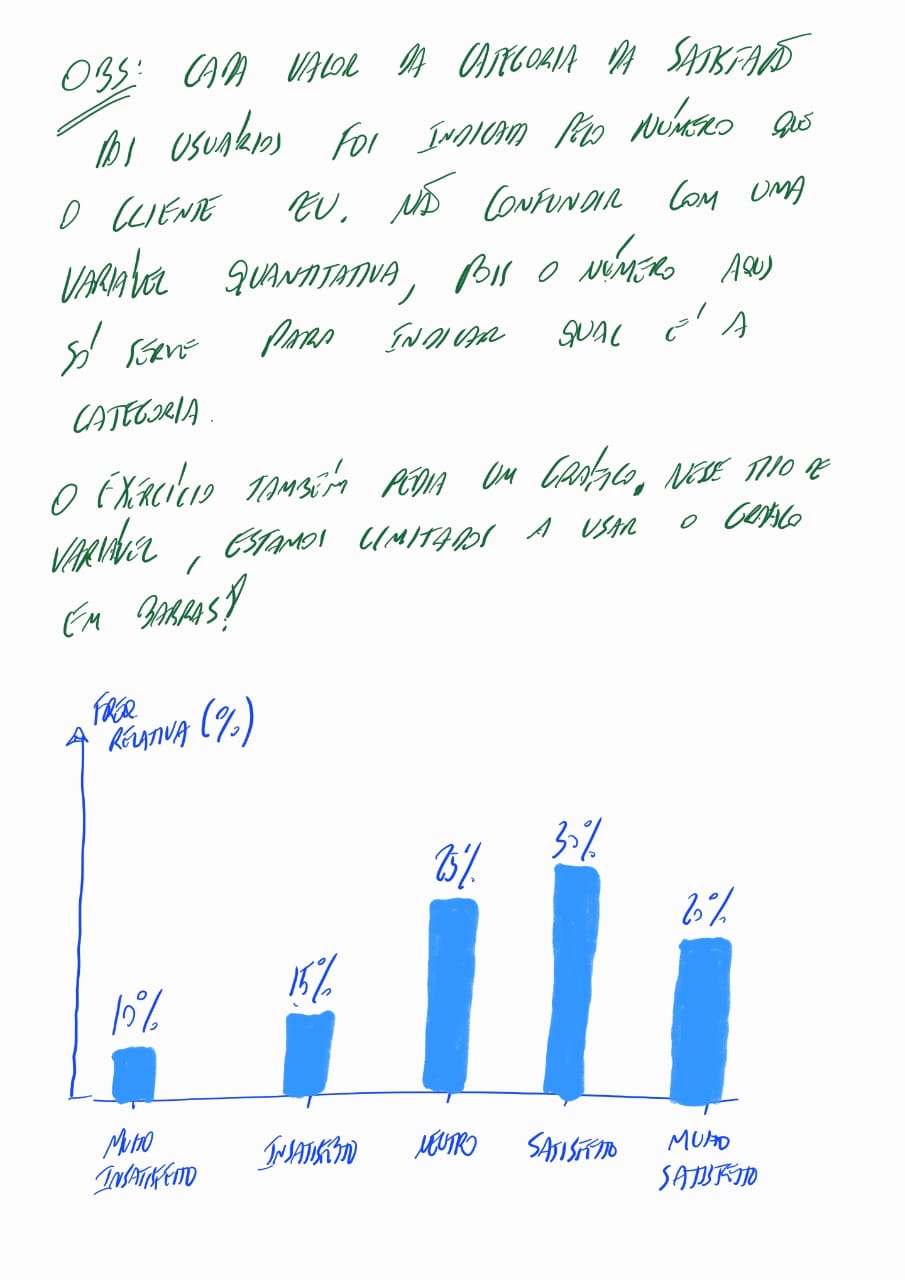 OBS: CADA VALOR DA CATEGORIA DA SATISFAÇÃO
DOS USUÁRIOS FOI INDICADA PELO NÚMERO QUE
O CLIENTE DEU. NÃO CONFUNDIR COM UMA
VARIÁVEL QUANTITATIVA, POIS O NÚMERO AQUI
SÓ SERVE PARA INDICAR QUAL É A
CATEGORIA.
O EXERCÍCIO TAMBÉM PEDIA UM GRÁFICO. NESSE TIPO DE
VARIÁVEL, ESTAMOS LIMITADOS A USAR O GRÁFICO
EM BARRAS!
FREQ.
RELATIVA (%)
10%
15%
25%
30%
20%
MUITO
INSATISFEITO
INSATISFEITO
NEUTRO
SATISFEITO
MUITO
SATISFEITO